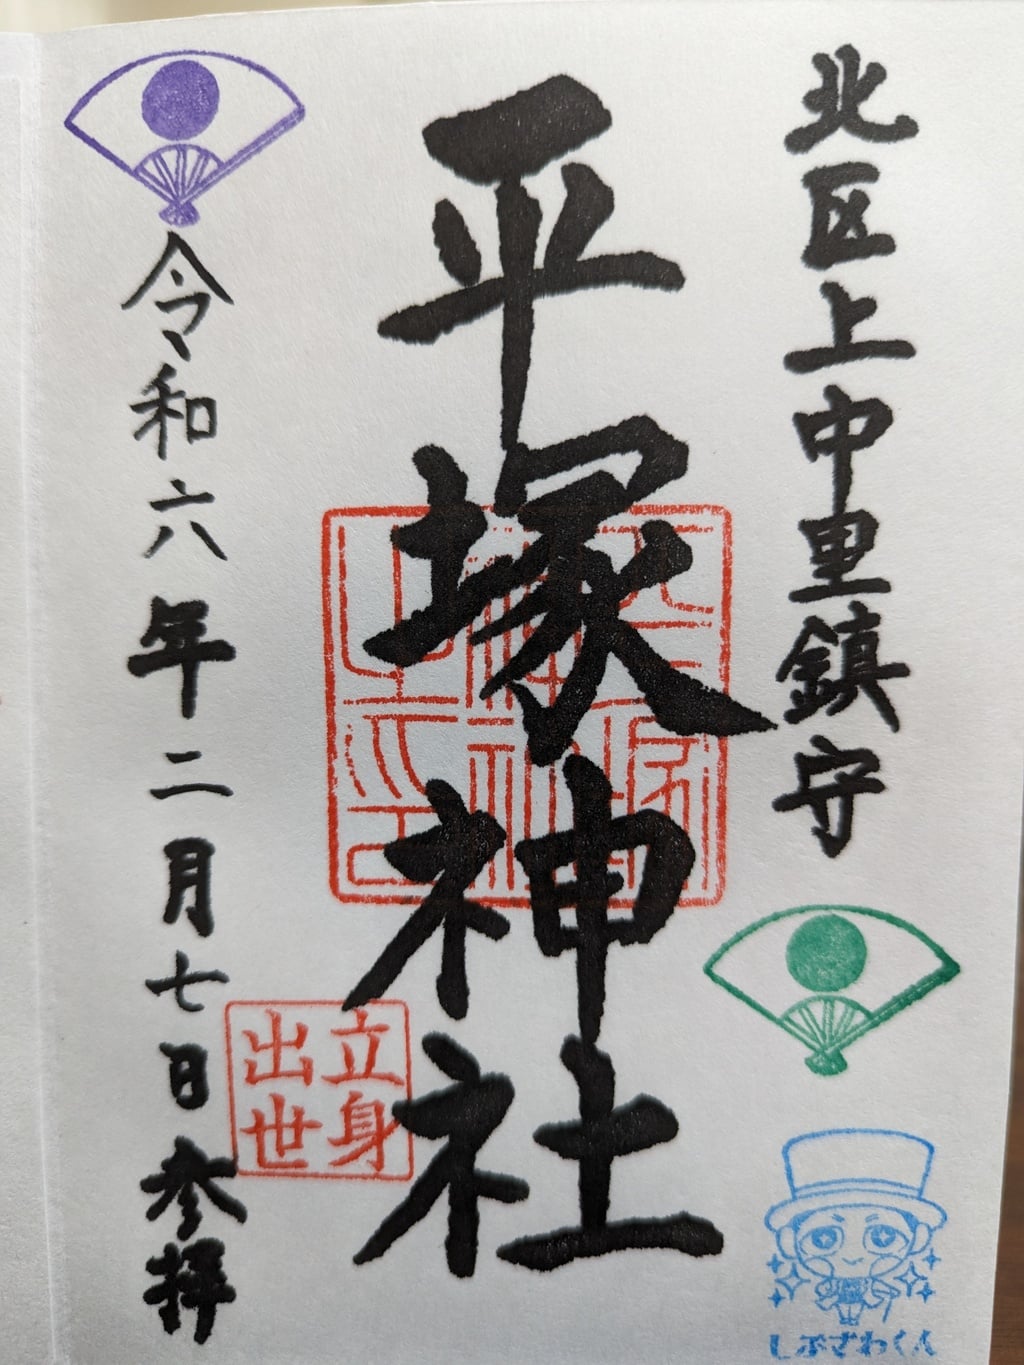 北区上中里鎮守
平塚神社
令和六年二月七日参拝
立身
出世
しぶざわくん